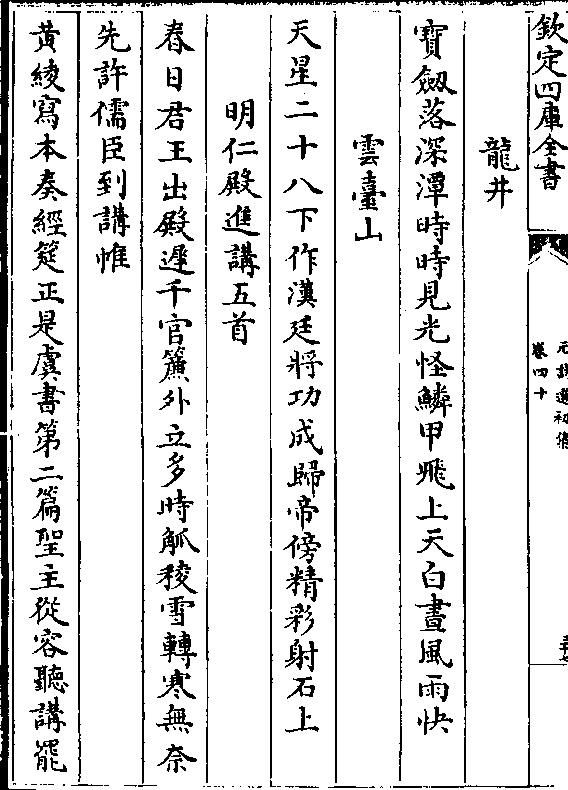 欽定四庫全書
元詩選初集
卷四十
龍井
寶劒落深潭時時見光怪鱗甲飛上天白晝風雨快
雲臺山
天星二十八下作漢廷將功成歸帝傍精彩射石上
明仁殿進講五首
春日君王出殿遲千官簾外立多時觚稜雪轉寒無奈
先許儒臣到講帷
黃綾寫本奏經筵正是虞書第二篇聖主從容聽講罷